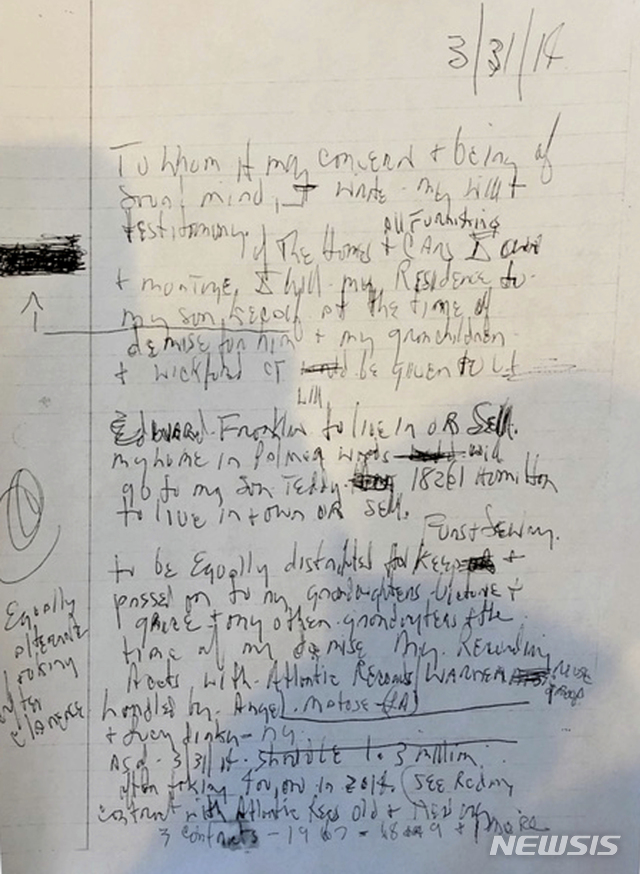 3/31/14
To Whom it may concern + being of
sound mind, I write my will +
testimony.
All Furnishing
of The Homes + CARS I own
+ monture, I will my Residence to
my son, Kecalf at the time of
demise for him + my grandchildren
+ Wickford CT be given to
Will
Edward Franklin to live in OR Sell.
my home in Palmer Woods will
go to my son Teddy. 18261 Hamilton
to live in + own OR sell.
Furs + Jewelry
to be Equally distributed for keep +
passed on to my grandaughters Victorie +
Grace + any other grandaughters + the
time of my demise My Recording
Accts with Atlantic Records/WARNER
handled by
+
As of 3/31/14 - should be 1.3 million
after taking in 2014. (See
contract with Atlantic Recs Old + New
3 contracts - 1967 - 68 + more
Equally
alternate
taking
after
Clarence
NEWSIS